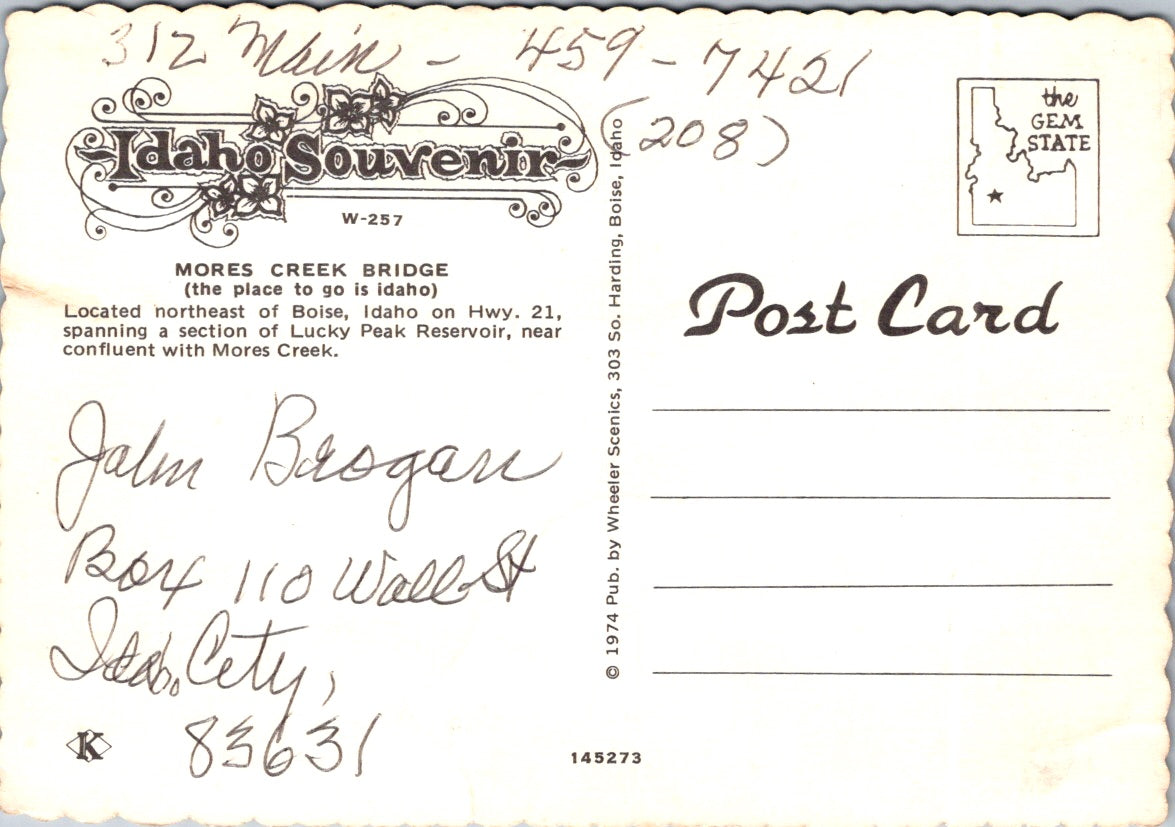 312 Main - 459-7421
(208)
Idaho Souvenir
W-257
MORES CREEK BRIDGE
(the place to go is idaho)
Located northeast of Boise, Idaho on Hwy. 21,
spanning a section of Lucky Peak Reservoir, near
confluent with Mores Creek.
John Brogan
Box 110 Wall St
Idaho City,
83631
K
© 1974 Pub. by Wheeler Scenics, 303 So. Harding, Boise, Idaho
145273
the
GEM
STATE
Post Card